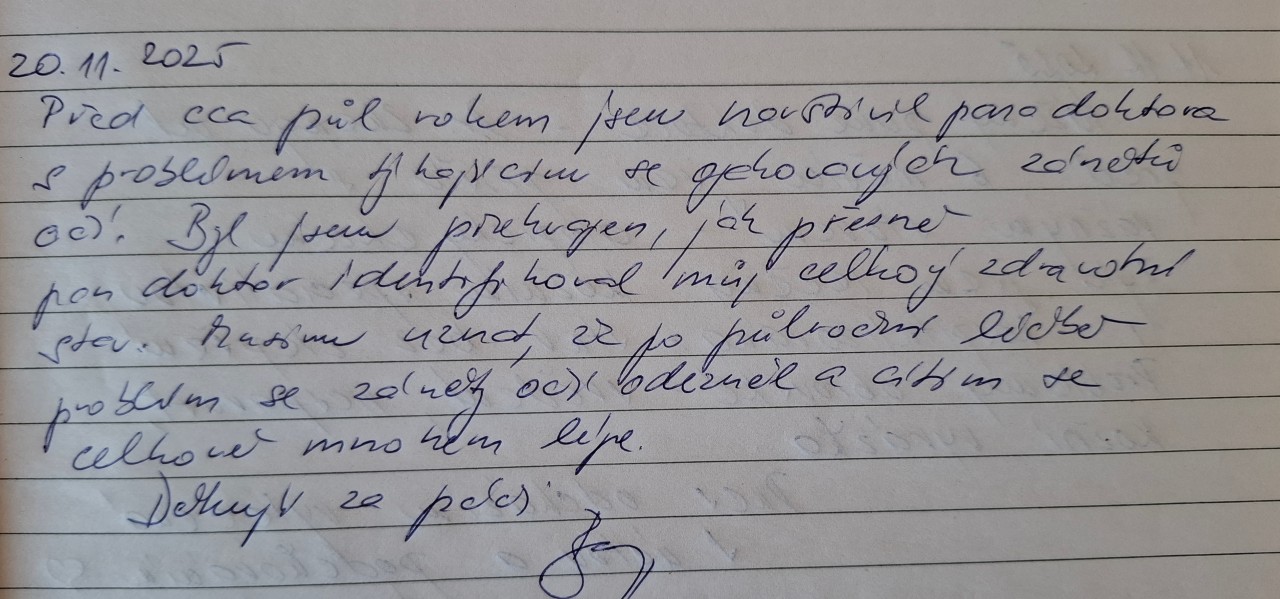 20.11. 2025
Před cca půl rokem jsem navštívil pana doktora
s problémem týkajícím se opakovaných zánětů
očí. Byl jsem překvapen, jak přesně
pan doktor identifikoval můj celkový zdravotní
stav. Musím uznat, že po půlroční léčbě
problém se záněty očí odezněl a cítím se
celkově mnohem lépe.
Děkuji za péči